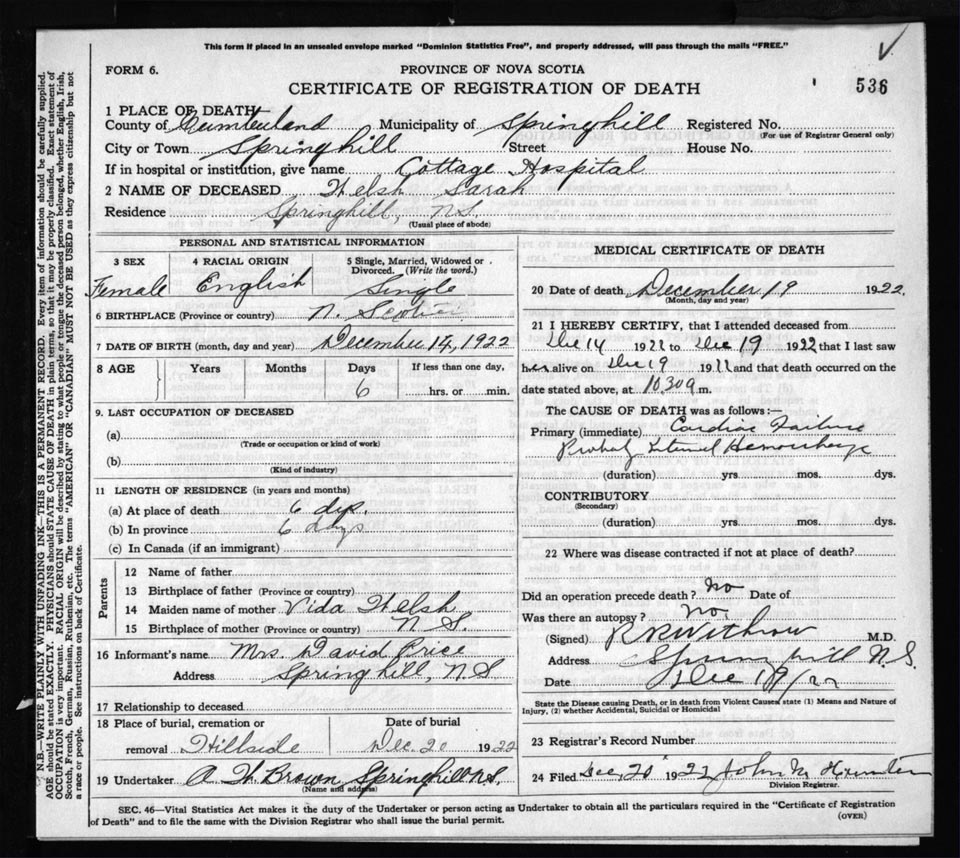 This form if placed in an unsealed envelope marked "Dominion Statistics Free", and properly addressed, will pass through the mails "FREE."
FORM 6.
PROVINCE OF NOVA SCOTIA
CERTIFICATE OF REGISTRATION OF DEATH
536
1 PLACE OF DEATH
County of Cumberland Municipality of Springhill Registered No.
(For use of Registrar General only)
City or Town Springhill Street House No.
If in hospital or institution, give name Cottage Hospital
2 NAME OF DECEASED Welsh Sarah
Residence Springhill, N.S.
(Usual place of abode)
PERSONAL AND STATISTICAL INFORMATION
3 SEX 4 RACIAL ORIGIN 5 Single, Married, Widowed or Divorced. (Write the word.)
Female English Single
6 BIRTHPLACE (Province or country) N. Scotia
7 DATE OF BIRTH (month, day and year) December 14, 1922
8 AGE Years Months Days If less than one day,
6 hrs. or min.
9. LAST OCCUPATION OF DECEASED
(a)
(Trade or occupation or kind of work)
(b)
(Kind of industry)
11 LENGTH OF RESIDENCE (in years and months)
(a) At place of death 6 dys.
(b) In province 6 dys
(c) In Canada (if an immigrant)
Parents
12 Name of father
13 Birthplace of father (Province or country)
14 Maiden name of mother Vida Welsh
15 Birthplace of mother (Province or country) N S.
16 Informant's name Mrs. David Price
Address Springhill, N.S
17 Relationship to deceased
18 Place of burial, cremation or removal Hillside Date of burial Dec. 20 1922
19 Undertaker A. W. Brown Springhill N.S.
(Name and address)
MEDICAL CERTIFICATE OF DEATH
20 Date of death December 19 1922.
(Month, day and year)
21 I HEREBY CERTIFY, that I attended deceased from
Dec 14 1922 to Dec 19 1922 that I last saw
her alive on Dec 19 1922 and that death occurred on the
date stated above, at 10.30 a m.
The CAUSE OF DEATH was as follows:—
Primary (immediate) Cardiac Failure
Probably Internal Hemorrhage
(duration) yrs. mos. dys.
CONTRIBUTORY
(Secondary)
(duration) yrs. mos. dys.
22 Where was disease contracted if not at place of death?
Did an operation precede death? no Date of
Was there an autopsy? no.
(Signed) Withrow M.D.
Address Springhill N.S.
Date Dec 19/22
State the Disease causing Death, or in death from Violent Causes state (1) Means and Nature of
Injury, (2) whether Accidental, Suicidal or Homicidal
23 Registrar's Record Number
24 Filed Dec, 20 1922 John M Hunter
Division Registrar.
SEC. 46—Vital Statistics Act makes it the duty of the Undertaker or person acting as Undertaker to obtain all the particulars required in the "Certificate of Registration
of Death" and to file the same with the Division Registrar who shall issue the burial permit.
(OVER)
N.B.—WRITE PLAINLY WITH UNFADING INK—THIS IS A PERMANENT RECORD. Every item of information should be carefully supplied.
AGE should be stated EXACTLY. PHYSICIANS should STATE CAUSE OF DEATH in plain terms, so that it may be properly classified. Exact statement of
OCCUPATION is very important. RACIAL ORIGIN will be described by stating to what people or tongue the deceased person belonged, whether English, Irish,
Scotch, French, German, Russian, Ruthenian, etc. The terms "AMERICAN" OR "CANADIAN" MUST NOT BE USED as they express citizenship but not
a race or people. See instructions on back of Certificate.